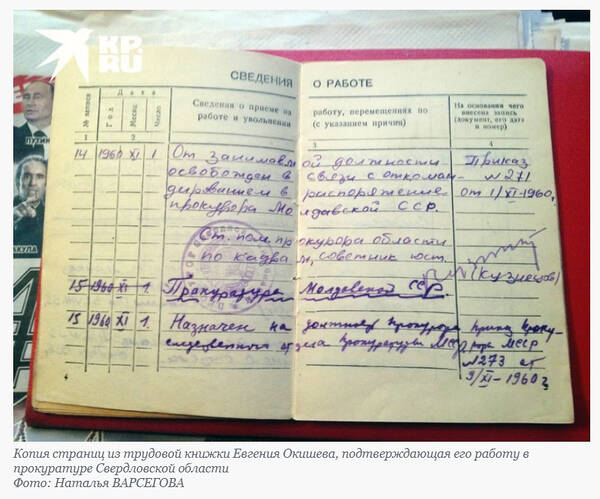 KP.
RU
ПУТИН
АКУЛА
СВЕДЕНИЯ О РАБОТЕ
№ записи
Дата
Год
Месяц
Число
Сведения о приеме на работу, перемещениях по
работе и увольнении (с указанием причин)
На основании чего
внесена запись
(документ, его дата
и номер)
1 2 3 4
14 1960 XI 1 От занимаемой должности Приказ
освобожден в связи с откоман- №271
дированием в распоряжение от 1/XI-1960г.
прокурора Молдавской ССР.
Ст. пом. прокурора области
по кадрам, советник юст. (Кузнецов)
15 1960 XI 1. Прокуратура Молдавской ССР.
15 1960 XI 1. Назначен на должность прокурора Приказ Проку-
следственного отдела Прокуратуры МССР рора МССР
№273 от
9/XI-1960г
4
Копия страниц из трудовой книжки Евгения Окишева, подтверждающая его работу в
прокуратуре Свердловской области
Фото: Наталья ВАРСЕГОВА